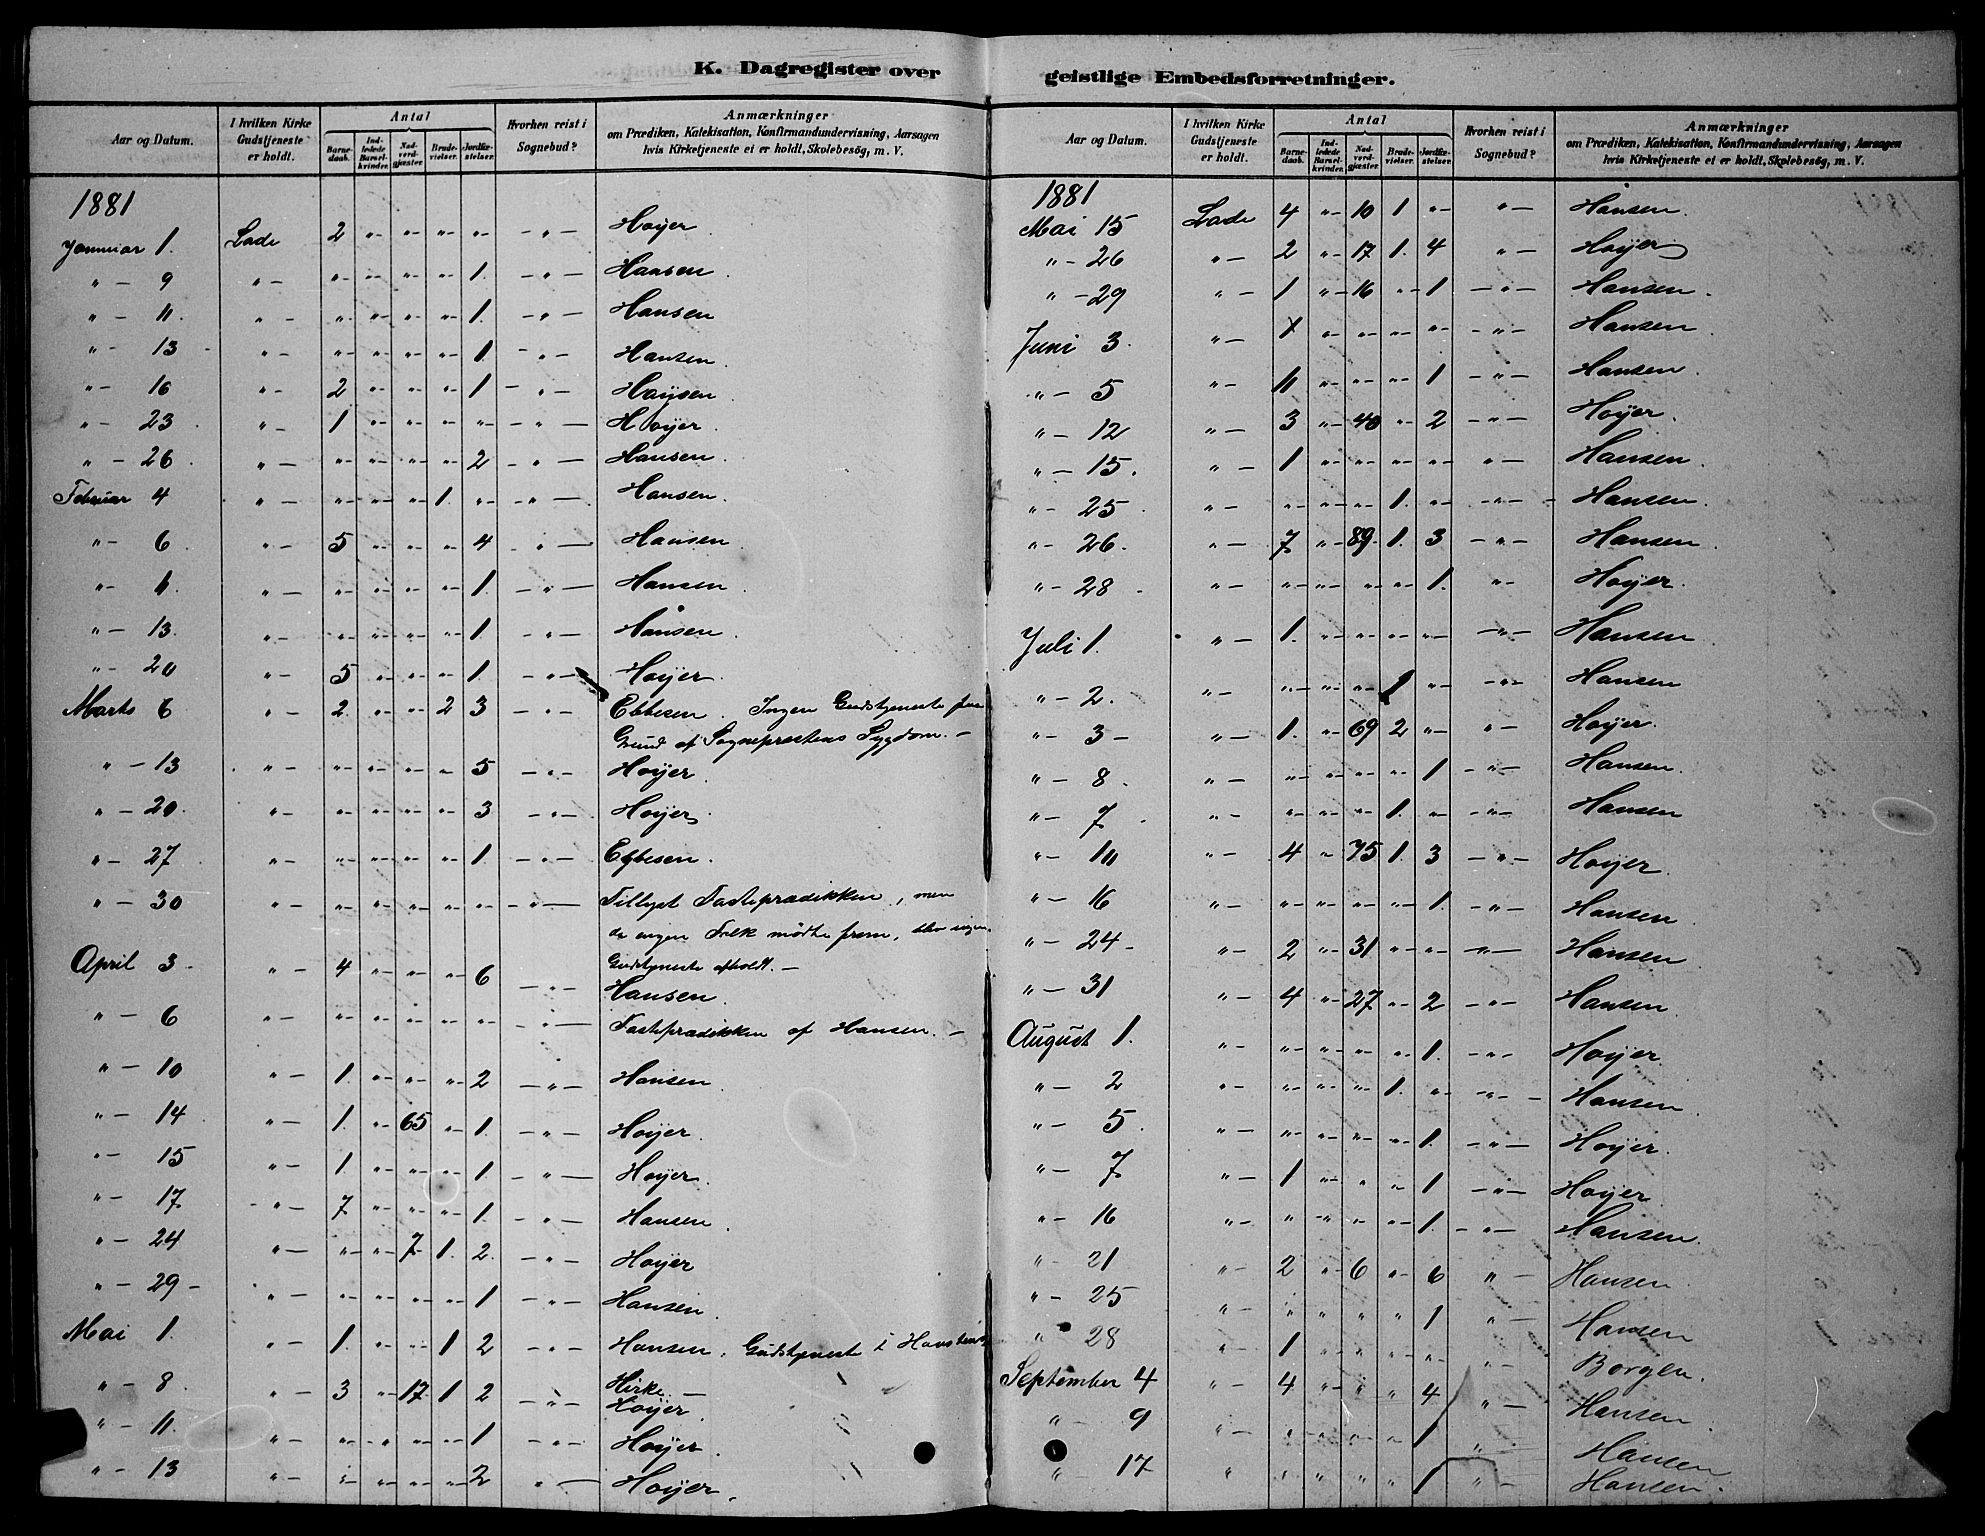 K. Dagregister over geistlige Embedsforretninger.
Aar og Datum. I hvilken Kirke Gudstjeneste er holdt. Antal Barnedaab. Indledede Barselkvinder. Nadverdgjæster. Brudevielser. Jordfæstelser. Hvorhen reist i Sognebud? Anmærkninger om Prædiken, Katekisation, Konfirmandundervisning, Aarsagen hvis Kirketjeneste ei er holdt, Skolebesög, m. V.
1881
Januar 1. Lade 2 " " " " - " - Hoÿer
" - 9 " - " " " " 1. - " - Hansen.
" - 11. " - " " " " 1. - " - Hansen
" - 13 - " - " " " " 1. - " - Hansen.
" - 16 " - 2 " " " 1 - " - Hansen.
" - 23. " - 1 " " " " - " - Hoÿer.
" - 26. " - " " " " 2 - " - Hansen.
Februar 4 " - " " " 1. " - " - Hansen.
" - 6. " - 5 " " " 4 - " - Hansen.
" - " - " " " " 1. - " - Hansen.
" - 13. " - " " " " 1. - " - Hansen.
" - 20 " - 5 " " " 1. - " - Hoÿer.
Marts 6 " - 2. " " 2 3 - " - Ebbesen. Ingen Gudstjeneste paa
Grund af Sogneprestens Sygdom. -
" - 13 " - " " " " 5 - " - Hoÿer.
" - 20. " - " " " " 3 - " - Hoÿer.
" - 27 " - " " " " 1. - " - Ebbesen.
" - 30 " - " " " " " - " - Tillyst Fasteprædikken, men
da ingen Folk mödte frem, blev ingen
Gudstjeneste afholdt. -
April 3 - " - 4 " " " 6 - " - Hansen.
" - 6 " - " " " " " - " - Fasteprædikken af Hansen. -
" - 10 " - 1. " " " 2 - " - Hansen.
" - 14 " - 1. " 65 " 1. - " - Hoÿer.
" - 15 " - 1 " " " 1 - " - Hoÿer.
" - 17 - " - 7 " " " 1. - " - Hansen.
" - 24 " - " " 7 1. 2. - " - Hoÿer
" - 29 - " - " " " " 1 - " - Hansen.
Mai 1. " - 1. " " 1 2 - " - Hansen. Gudstjeneste i Havstens
Kirke. -
" - 8 " - 3 " 17 1 2 - " - Hoÿer.
" - 11. " - " " " " 1 - " - Hoÿer.
" - 13 " - " " " " 2 " - Hoÿer.
Aar og Datum. I hvilken Kirke Gudstjeneste er holdt. Antal Barnedaab. Indledede Barselkvinder. Nadverdgjæster. Brudevielser. Jordfæstelser. Hvorhen reist i Sognebud? Anmærkninger om Prædiken, Katekisation, Konfirmandundervisning, Aarsagen hvis Kirketjeneste ei er holdt, Skolebesög, m. V.
1881
Mai 15 Lade 4 " 10 1 " " - Hansen.
" - 26 " - 2 " 17 1. 4 " - Hoÿer
" - 29 " - 1 " 16 " 1 - " - Hansen.
Juni 3. " - " " " " - " - Hansen.
" - 5 " - 11 " " " 1 - " - Hansen.
" - 12 " - 3 " 40 " 2 - " - Hoÿer.
" - 15. " - 1 " " " " " - Hansen.
" - 25. " - " " " 1. " - " - Hansen.
" - 26. " - 7 " 89 1. 3 - " - Hansen.
" - 28. " - " " " " 1. " - Hoÿer.
Juli 1. " - 1. " " " " - " - Hansen.
" - 2. " - " " " 1 " - " - Hansen
" - 3 - " - 1. " 69 2 " " - Hoÿer.
" - 8. " - " " " " 1 - " - Hansen.
" - 7 " - " " " 1. " - " - Hansen
" - 10 " - 4 " 75 1. 3 - " - Hoÿer.
" - 16 " - " " " " 1. - " - Hansen.
" - 24 - " - 2 " 31 " " - " - Hansen.
" - 31 " - 4 " 27 " 2 - " - Hansen.
August 1. " - " " " " 1. - " - Hoÿer.
" - 2 " - " " " 1. " - " - Hansen.
" - 5. " - " " " " 1. - " - Hoÿer.
" - 7 " - 1 " " " 1 - " - Hoÿer.
" - 16 " - " " " " 1. - " - Hansen.
" - 21 " - 2 " 6 " 6 " - Hansen.
" - 25 " - " " " " 1 " - Hansen
" 28 " - 1 " " " " " - Borgen.
September 4 " - 4 " " " 4 " - Hansen.
" - 9 " - " " " " 1 " Hansen
" - 17 " " " " " 1 " - Hansen.